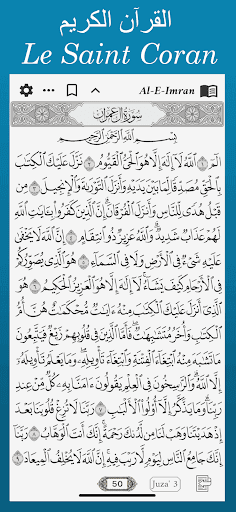 القرآن الكريم
Le Saint Coran
Al-E-Imran
سُورَةُ آلِ عِمْرَانَ
بِسْمِ ٱللَّهِ ٱلرَّحْمَٰنِ ٱلرَّحِيمِ
الٓمٓ ١ ٱللَّهُ لَآ إِلَٰهَ إِلَّا هُوَ ٱلْحَىُّ ٱلْقَيُّومُ ٢ نَزَّلَ عَلَيْكَ ٱلْكِتَٰبَ
بِٱلْحَقِّ مُصَدِّقًا لِّمَا بَيْنَ يَدَيْهِ وَأَنزَلَ ٱلتَّوْرَىٰةَ وَٱلْإِنجِيلَ ٣ مِن
قَبْلُ هُدًى لِّلنَّاسِ وَأَنزَلَ ٱلْفُرْقَانَ ۗ إِنَّ ٱلَّذِينَ كَفَرُوا۟ بِـَٔايَٰتِ ٱللَّهِ
لَهُمْ عَذَابٌ شَدِيدٌ ۗ وَٱللَّهُ عَزِيزٌ ذُو ٱنتِقَامٍ ٤ إِنَّ ٱللَّهَ لَا يَخْفَىٰ
عَلَيْهِ شَىْءٌ فِى ٱلْأَرْضِ وَلَا فِى ٱلسَّمَآءِ ٥ هُوَ ٱلَّذِى يُصَوِّرُكُمْ
فِى ٱلْأَرْحَامِ كَيْفَ يَشَآءُ ۚ لَآ إِلَٰهَ إِلَّا هُوَ ٱلْعَزِيزُ ٱلْحَكِيمُ ٦ هُوَ
ٱلَّذِىٓ أَنزَلَ عَلَيْكَ ٱلْكِتَٰبَ مِنْهُ ءَايَٰتٌ مُّحْكَمَٰتٌ هُنَّ أُمُّ
ٱلْكِتَٰبِ وَأُخَرُ مُتَشَٰبِهَٰتٌ ۖ فَأَمَّا ٱلَّذِينَ فِى قُلُوبِهِمْ زَيْغٌ فَيَتَّبِعُونَ
مَا تَشَٰبَهَ مِنْهُ ٱبْتِغَآءَ ٱلْفِتْنَةِ وَٱبْتِغَآءَ تَأْوِيلِهِۦ ۗ وَمَا يَعْلَمُ تَأْوِيلَهُۥٓ
إِلَّا ٱللَّهُ ۗ وَٱلرَّٰسِخُونَ فِى ٱلْعِلْمِ يَقُولُونَ ءَامَنَّا بِهِۦ كُلٌّ مِّنْ عِندِ
رَبِّنَا ۗ وَمَا يَذَّكَّرُ إِلَّآ أُو۟لُوا۟ ٱلْأَلْبَٰبِ ٧ رَبَّنَا لَا تُزِغْ قُلُوبَنَا بَعْدَ
إِذْ هَدَيْتَنَا وَهَبْ لَنَا مِن لَّدُنكَ رَحْمَةً ۚ إِنَّكَ أَنتَ ٱلْوَهَّابُ ٨ رَبَّنَآ
إِنَّكَ جَامِعُ ٱلنَّاسِ لِيَوْمٍ لَّا رَيْبَ فِيهِ ۚ إِنَّ ٱللَّهَ لَا يُخْلِفُ ٱلْمِيعَادَ ٩
50
Juza' 3